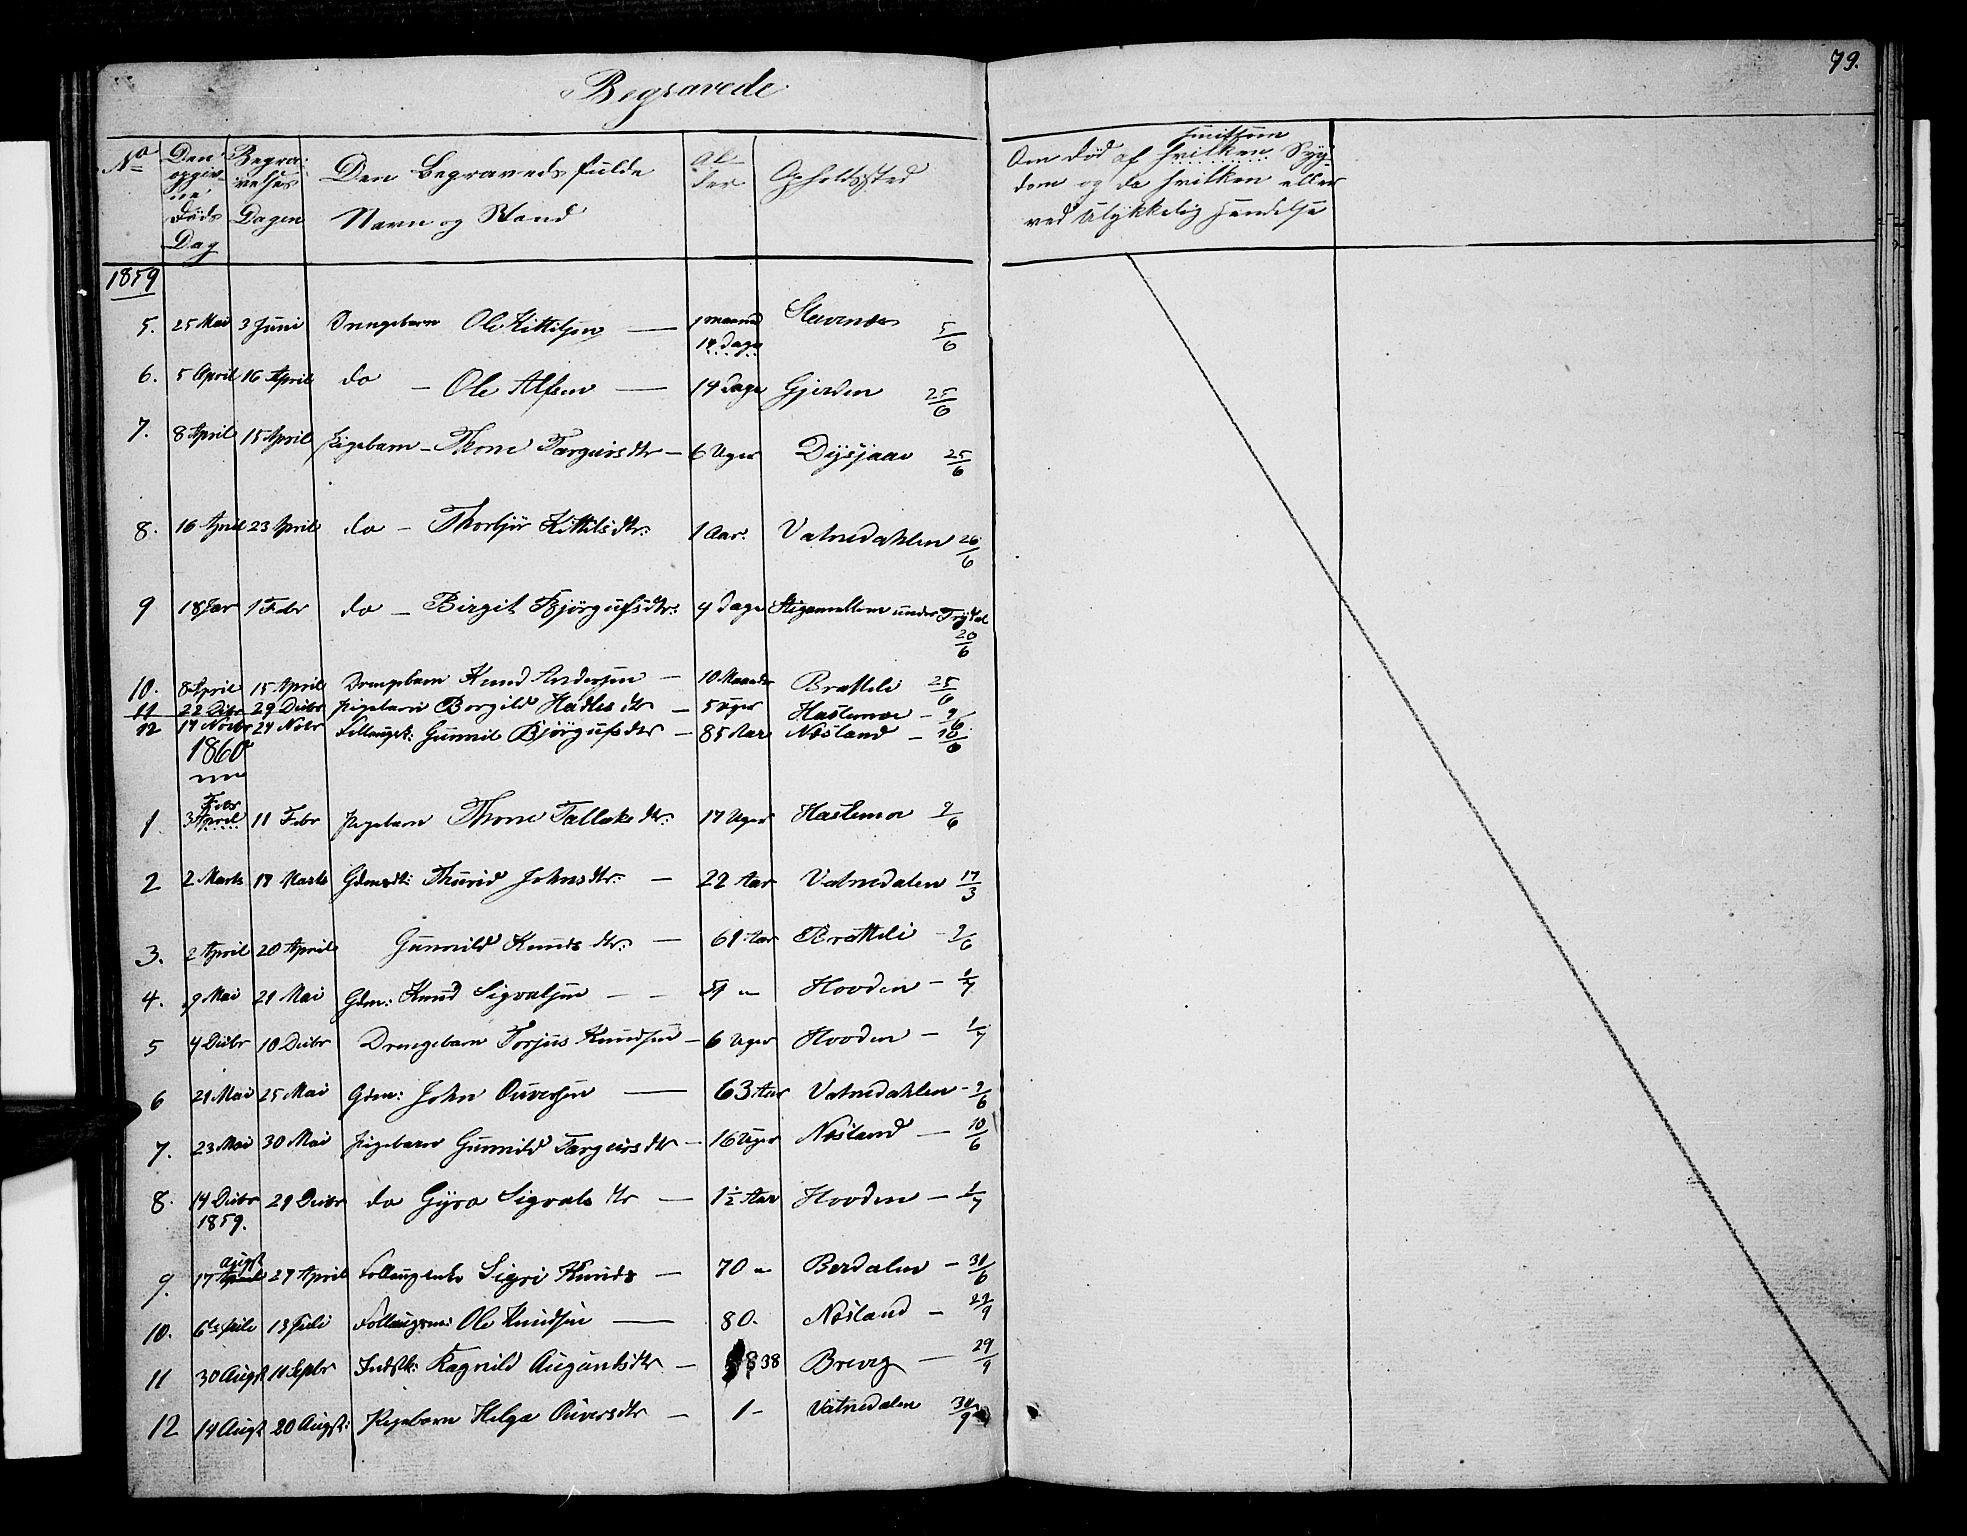 79.
Begravede.
No
Den opgivne Døds Dag
Begravelses Dagen
Den Begravedes fulde Navn og Stand
Alder
Opholdssted
Om død af smitsom hvilken Sygdom og da hvilken eller ved Ulykkelig Hendelse
1859
5. 25 Mai 3 Juni Drengebarn Ole Kittilsen — 1 Maaned 14 dage 5/6
6. 5 April 16 April do — Ole Alfsen — 14 dage Gjerden 25/6
7. 8 April 15 April Pigebarn — Thone Targeirsdtr — 6 Uger 25/6
8. 16 April 23 April do — Thorbjør Kittilsdtr: 1 Aar. Vatnedahlen 26/6
9 18 Jar 1 Febr do — Birgit Bjørgufsdtr: 4 dage under 20/6
10. 8 April 15 April Drengebarn Knud Andersen — 10 Maaneder Bratteli 25/6
11 22 Decbr 29 Decbr Pigebarn Borgild Hadlesdtr — 5 Uger Hastemoe — 9/6
12 17 Novbr 24 Nobr Gunnil Bjørgufsdtr — 85 Aar Nesland — 10/6
1860
1. 3 Febr April 11 Febr Pigebarn Thone Tallaksdtr: 17 Uger Hastemoe 9/6
2 2 Marts 17 Marts Thurid Johnsdtr: — 22 Aar Vatnedalen 17/3
3. 2 April 20 April Gunnild Knudsdtr: — 61 Aar Bratteli — 9/6
4. 9 Mai 21 Mai Gdm: Knud Sigvalsen — — Hovden — 1/7
5 4 Decbr 10 Decbr Drengebarn Torjus Knudsen — 6 Uger Hovden — 1/7
6 21 Mai 25 Mai Gdm: John Ouversen — 63 Aar Vatnedahlen — 9/6
7. 23 Mai 30 Mai Pigebarn Gunnild Targeirsdtr — 16 Uger Nesland — 10/6
8. 14 Decbr 1859. 21 Decbr do Gyro Sigvalsdtr — 1½ Aar Hovden — 1/7
9. 17 Augst April 27 April Sigri Knuds — 70 " Berdalen — 31/6
10. 6te Juli 13 Juli Ole Knudsen — 80. Nesland — 29/9
11 30 Augst 11 Sepbr Ragnild Augundsdtr — 38 Breveg — 29/9
12 14 Augst 20 Augst: Pigebarn Helga Ouversdtr — 1 — Vatnedalen 30/9